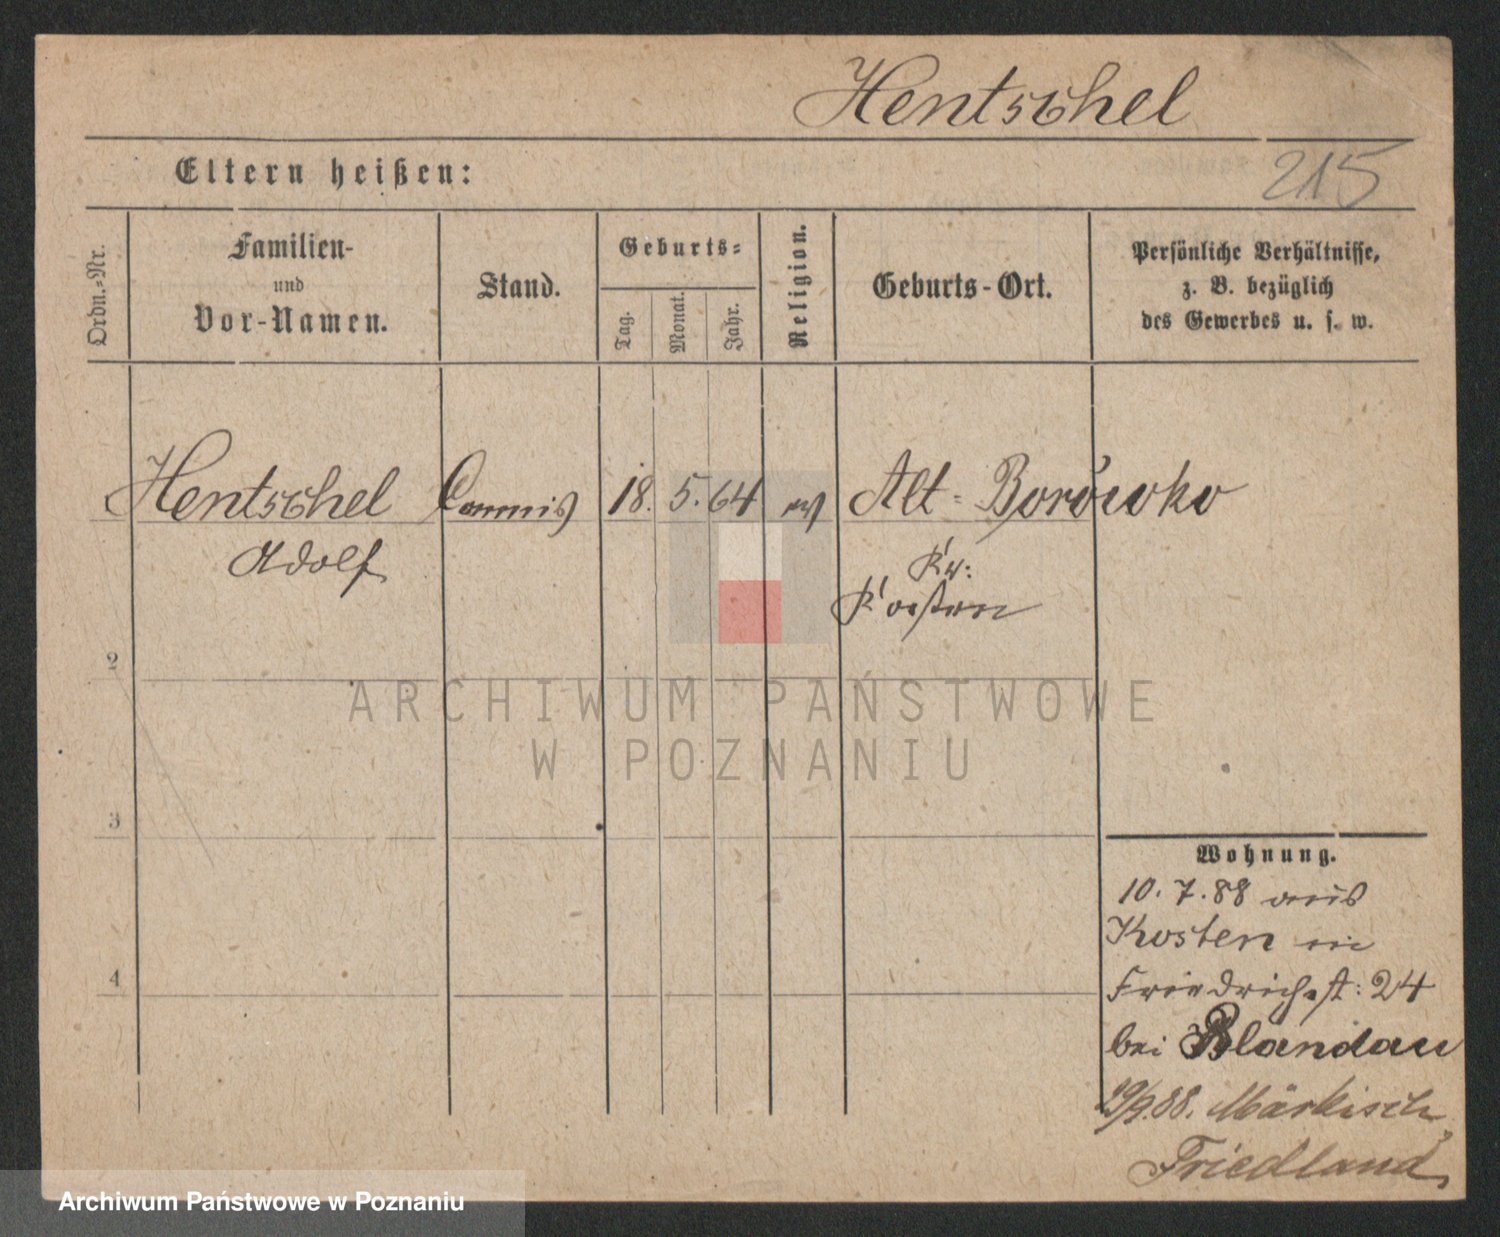 Hentschel
Eltern heißen:
215
Ordn.-Nr.
Familien-
und
Vor-Namen.
Stand.
Geburts-
Tag.
Monat.
Jahr.
Religion.
Geburts-Ort.
Persönliche Verhältnisse,
z. B. bezüglich
des Gewerbes u. s. w.
Hentschel Commis 18. 5. 64 ev Alt-Borówko
Adolf
Kr:
Kosten
2
3
4
ARCHIWUM PAŃSTWOWE
W POZNANIU
Wohnung.
10. 7. 88 aus
Kosten in
Friedrichst: 24
bei Blandau
29/9.88. Märkisch
Friedland,
Archiwum Państwowe w Poznaniu